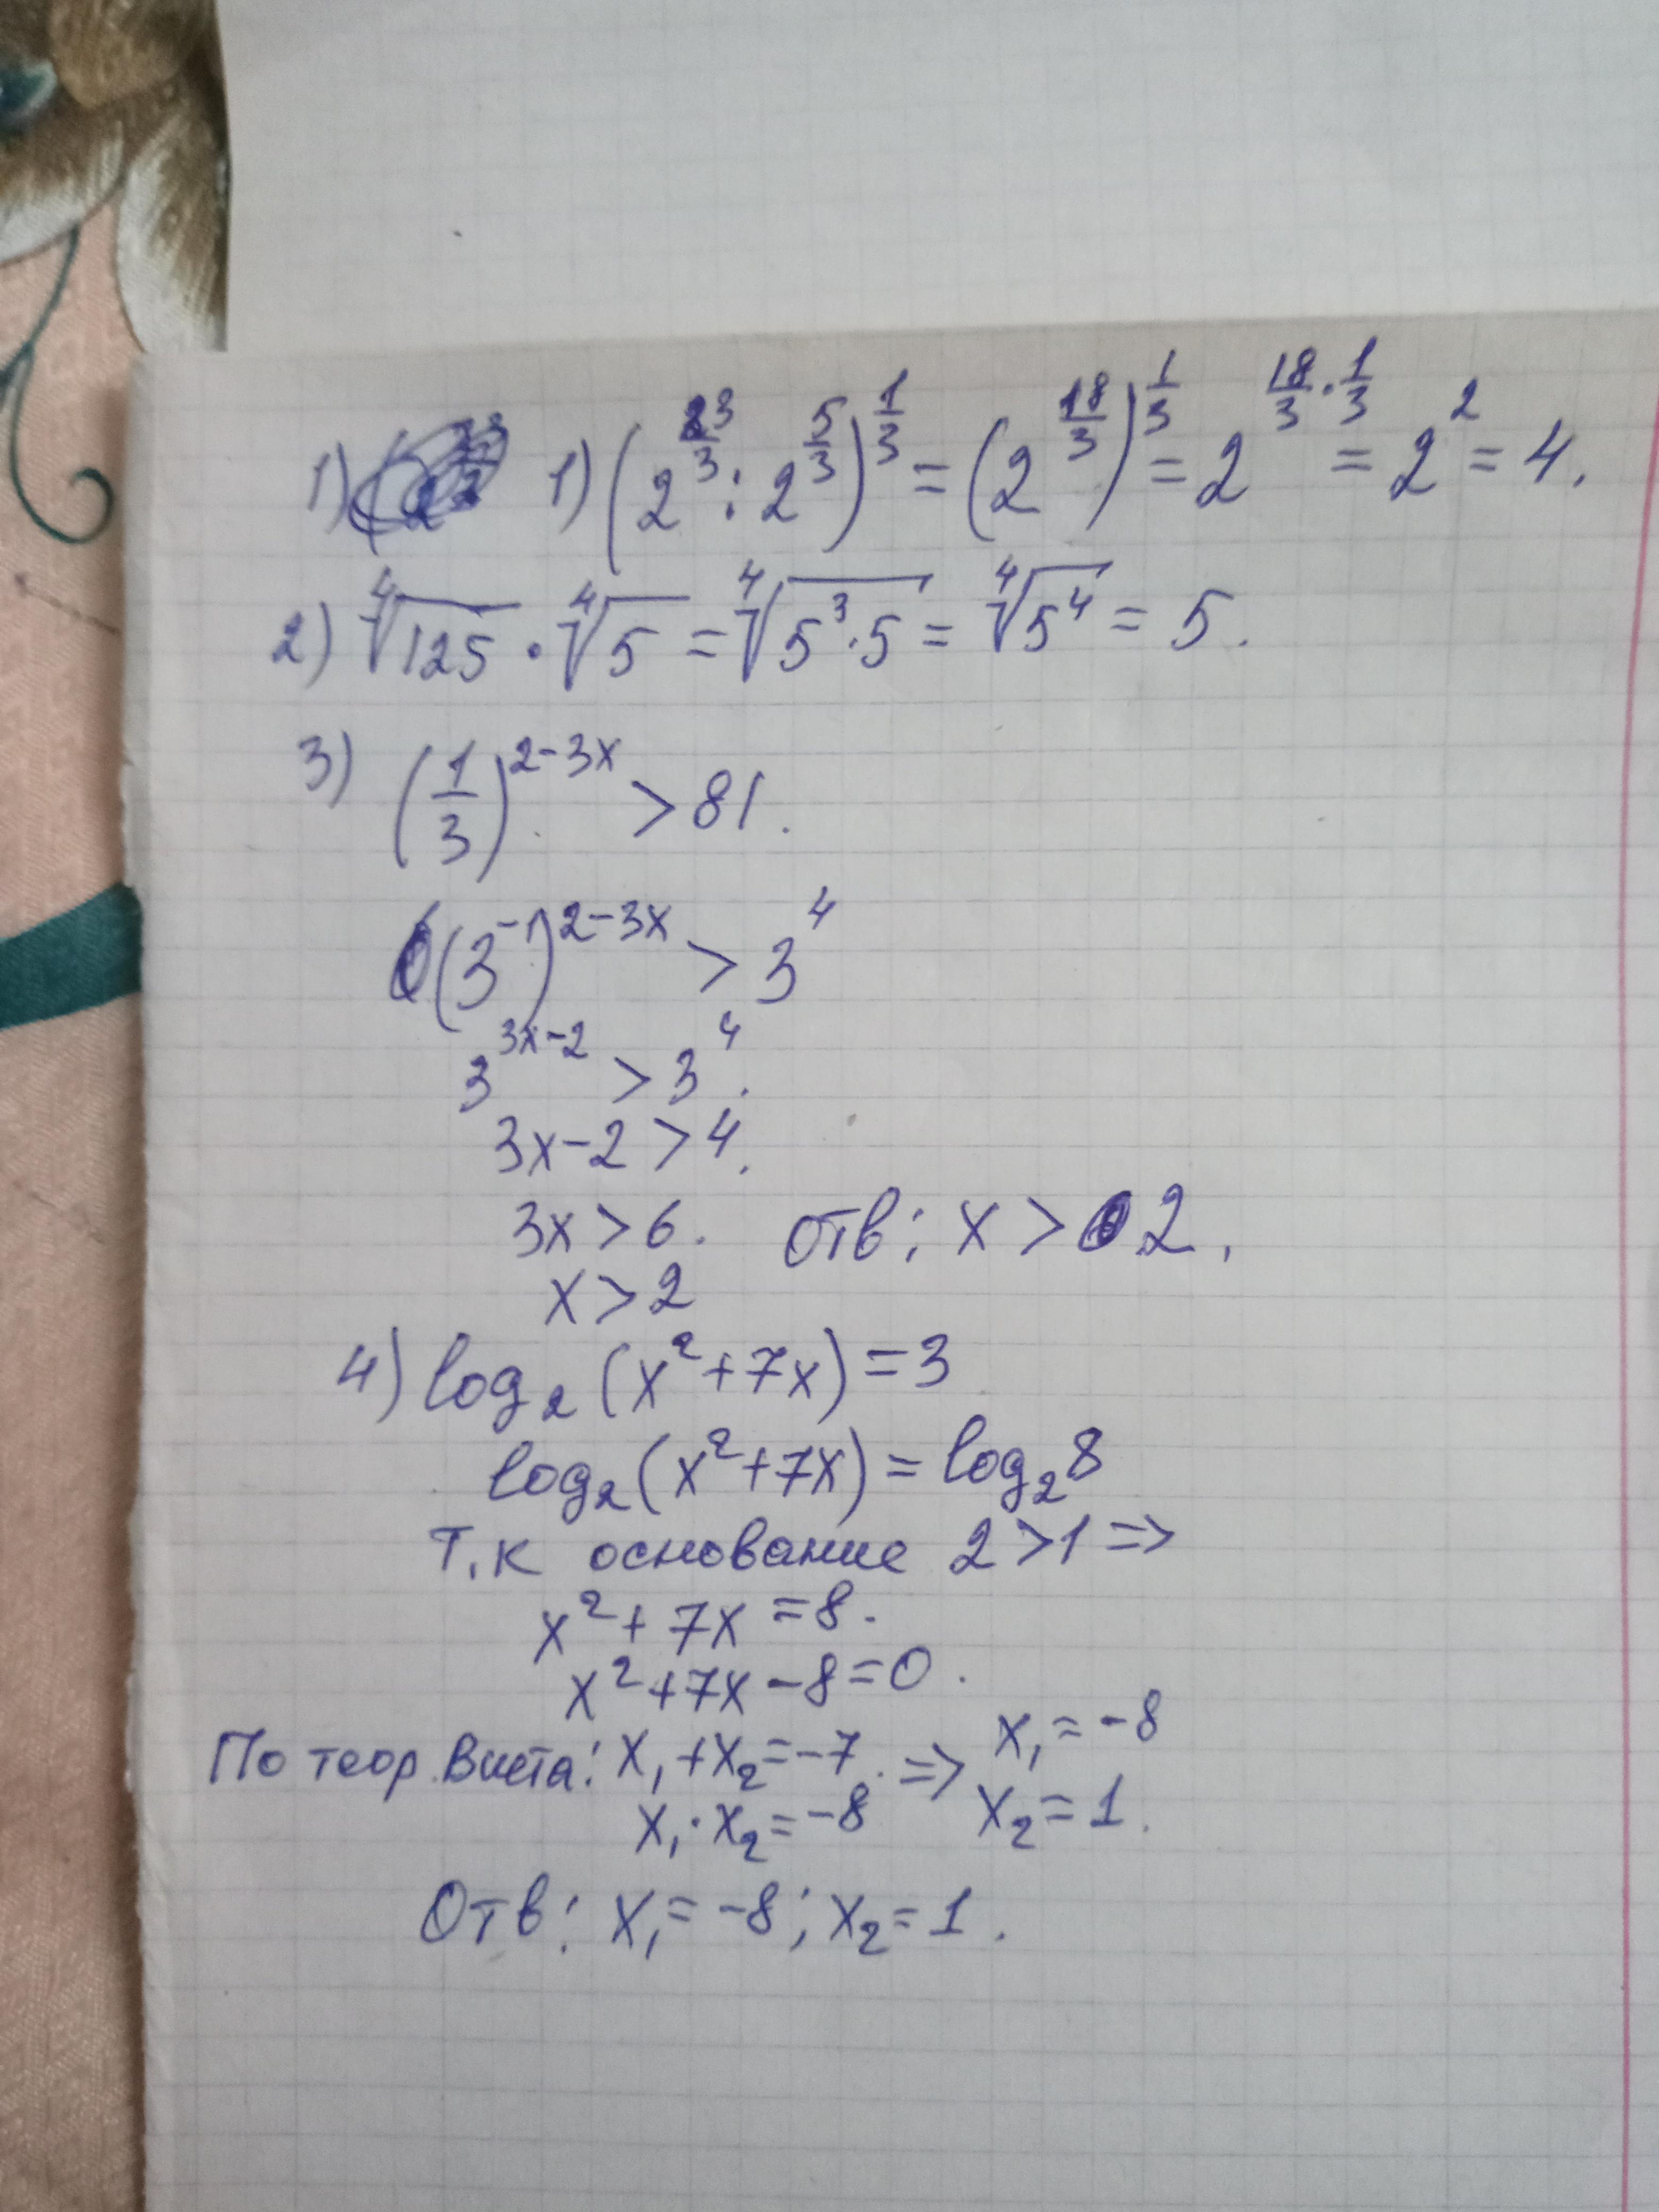 1) 1) (2^{23/3} : 2^{5/3})^{1/3} = (2^{18/3})^{1/3} = 2^{18/3 · 1/3} = 2^2 = 4.
2) ∜125 · ∜5 = ∜(5^3 · 5) = ∜(5^4) = 5.
3) (1/3)^{2-3x} > 81.
(3^{-1})^{2-3x} > 3^4
3^{3x-2} > 3^4.
3x-2 > 4.
3x > 6. Отв: x > 2.
x > 2
4) log_2 (x^2+7x) = 3
log_2 (x^2+7x) = log_2 8
Т.к основание 2 > 1 =>
x^2 + 7x = 8.
x^2 + 7x - 8 = 0.
По теор. Виета: x_1 + x_2 = -7. => x_1 = -8
x_1 · x_2 = -8 x_2 = 1.
Отв: x_1 = -8; x_2 = 1.